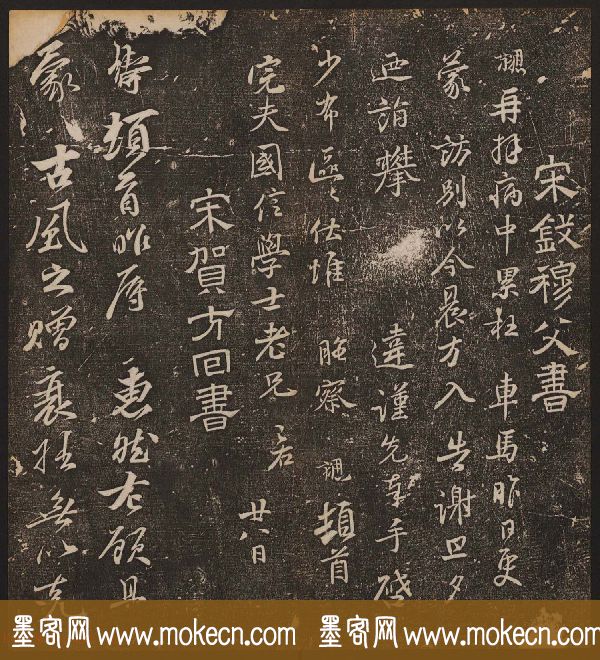 宋錢穆父書
勰再拜病中累枉 車馬昨日更
蒙 訪別以今晨方入告謝旦夕
迺詣攀 違謹先奉手啓
少布區〻伏惟 照察 勰頓首
完夫國信學士老兄 廿八日
宋賀方回書
鑄頓首昨辱 惠然左顧且
蒙古風之贈褒拂無以克
墨客网 www.mokecn.com 墨客网 www.mokecn.com